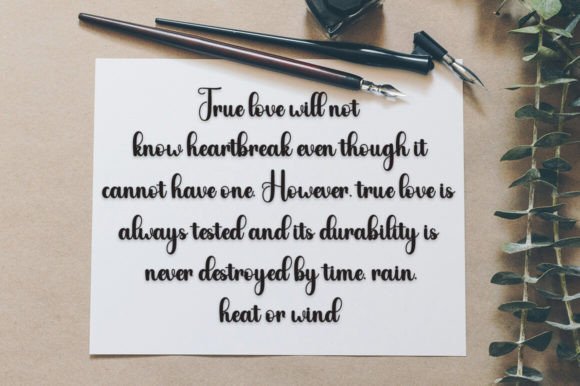 True love will not
know heartbreak even though it
cannot have one. However, true love is
always tested and its durability is
never destroyed by time, rain,
heat or wind